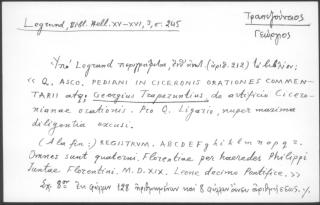 Legrand, Bibl. Hell. XV-XVI, 3, σ. 245
Τραπεζούντιος
Γεώργιος
Ὑπὸ Legrand περιγράφεται, ὑπ' ἀριθ. (ἀριθ. 212) τὸ βιβλίον:
« Q. ASCO. PEDIANI IN CICERONIS ORATIONES COMMEN-
TARII atqz Georgius Trapezuntius, de artificio Cicero-
nianae orationis. Pro Q. Ligario, nuper maxima
diligentia excusi.
(Ἀλα fin:) REGISTRVM. ABCDEFghiklmnopq.
Omnes sunt quaterni. Florentiae per haeredes Philippi
Juntae Florentini. M.D.XIX. Leone decimo Pontifice. »
Σχ. 8ον ἐκ φύλλων 128 ἠριθμημένων καὶ 8 φύλλων ἄνευ ἀριθμήσεως.